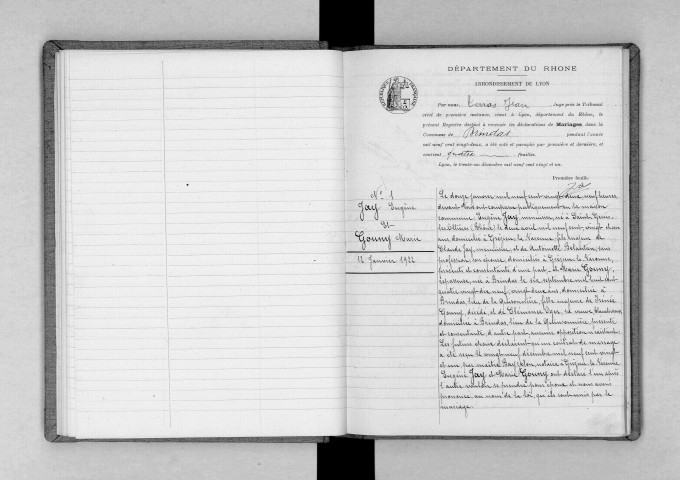 DÉPARTEMENT DU RHONE
ARRONDISSEMENT DE LYON
Par nous, Jean Juge près le Tribunal
civil de première instance, séant à Lyon, département du Rhône, le
présent Registre destiné à recevoir les déclarations de Mariages dans la
Commune de Brindas pendant l'année
mil neuf cent vingt-deux, a été coté et paraphé par première et dernière, et
contient quatre feuilles.
Lyon, le trente-un décembre mil neuf cent vingt et un.
Première feuille
N° 1
Jay Eugène
et
Gouny Marie
12 Janvier 1922
Le douze janvier mil neuf cent vingt deux, neuf heures
devant nous ont comparu publiquement en la maison
commune Eugène Jay, menuisier, né à Saint
les (Rhône) le deux août mil neuf cent, vingt et un
ans domicilié à Grézieu la Varenne, fils majeur de
Claude Jay, menuisier, et de Antoinette sans
profession, son épouse, domiciliés à Grézieu la Varenne,
présents et consentants d'une part. Et Marie Gouny,
repasseuse, née à Brindas le six septembre mil huit cent
quatre vingt dix neuf, vingt deux ans, domiciliée à
Brindas, lieu de la fille majeure de
Gouny, décédé, et de Clémence sa veuve,
domiciliée à Brindas, lieu de la présente
et consentante d'autre part, aucune opposition n'existant.
Les futurs époux déclarent qu'un contrat de mariage
a été reçu le vingt neuf décembre mil neuf cent vingt
et un, par maître notaire à Grézieu la Varenne
Eugène Jay et Marie Gouny ont déclaré l'un après
l'autre vouloir se prendre pour époux et nous avons
prononcé au nom de la loi, que ils sont unis par le
mariage.